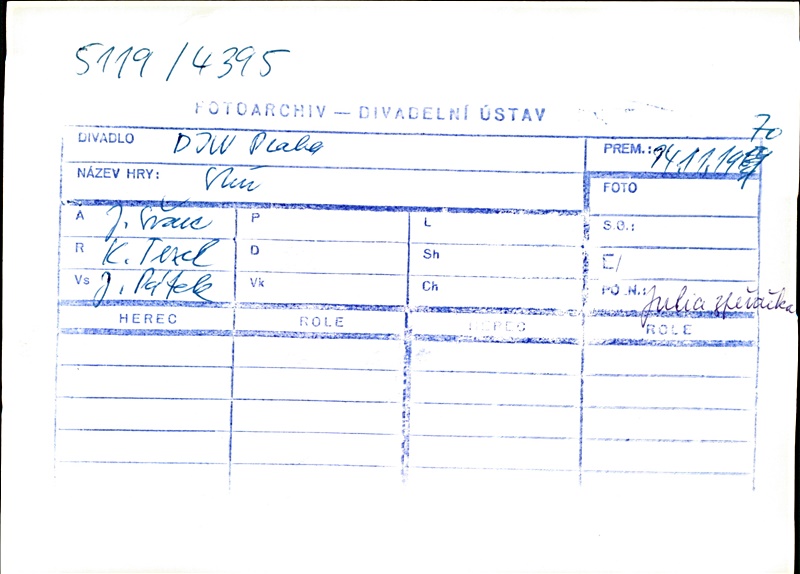 5119/4395
FOTOARCHIV — DIVADELNÍ ÚSTAV
70
DIVADLO DJW Praha
PREM.: 14.11.19
NÁZEV HRY: Stín
FOTO
A J. Švarc P L S.O.:
R K. Texel D Sh E/
Vs J. Pátek Vk Ch POZN.: Julia zpěvačka
HEREC ROLE HEREC ROLE